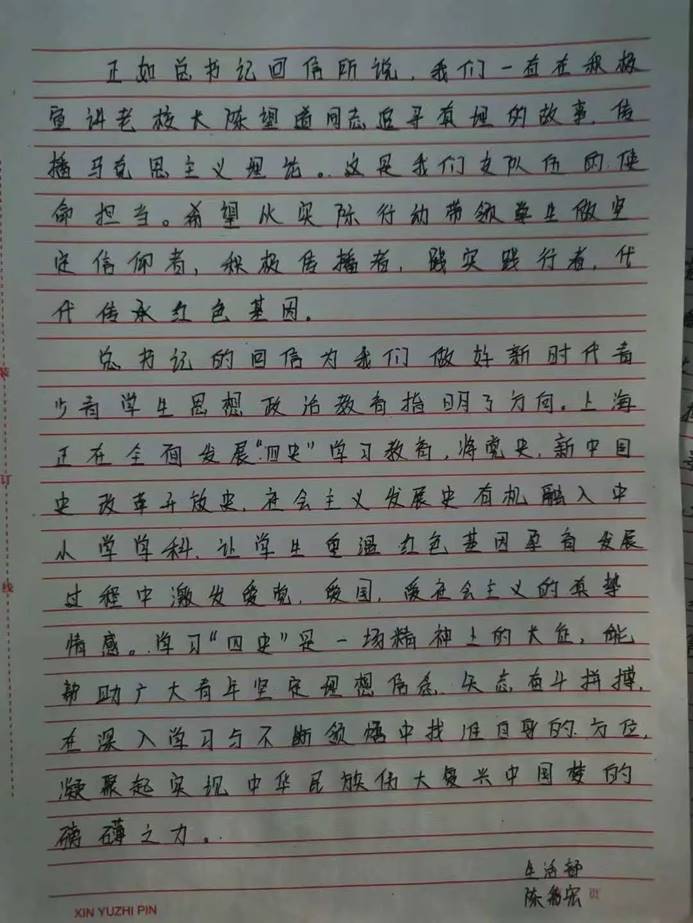 正如总书记回信所说，我们一直在积极
宣讲老校长陈望道同志追寻真理的故事，传
播马克思主义理论。这是我们支队伍的使
命担当。希望从实际行动带领学生做坚
定信仰者，积极传播者，践实践行者，代
代传承红色基因。
总书记的回信为我们做好新时代青
少青学生思想政治教育指明了方向。上海
正在全面发展“四史”学习教育，将党史，新中国
史改革开放史，社会主义发展史有机融入中
小学学科，让学生重温红色基因孕育发展
过程中激发爱党，爱国，爱社会主义的真挚
情感。学习“四史”是一场精神上的大餐，能
帮助广大青年坚定理想信念，矢志奋斗拼搏，
在深入学习与不断领悟中找准自身的方位，
凝聚起实现中华民族伟大复兴中国梦的
磅礴之力。
生活部
陈 宏
装
订
线
XIN YUZHI PIN